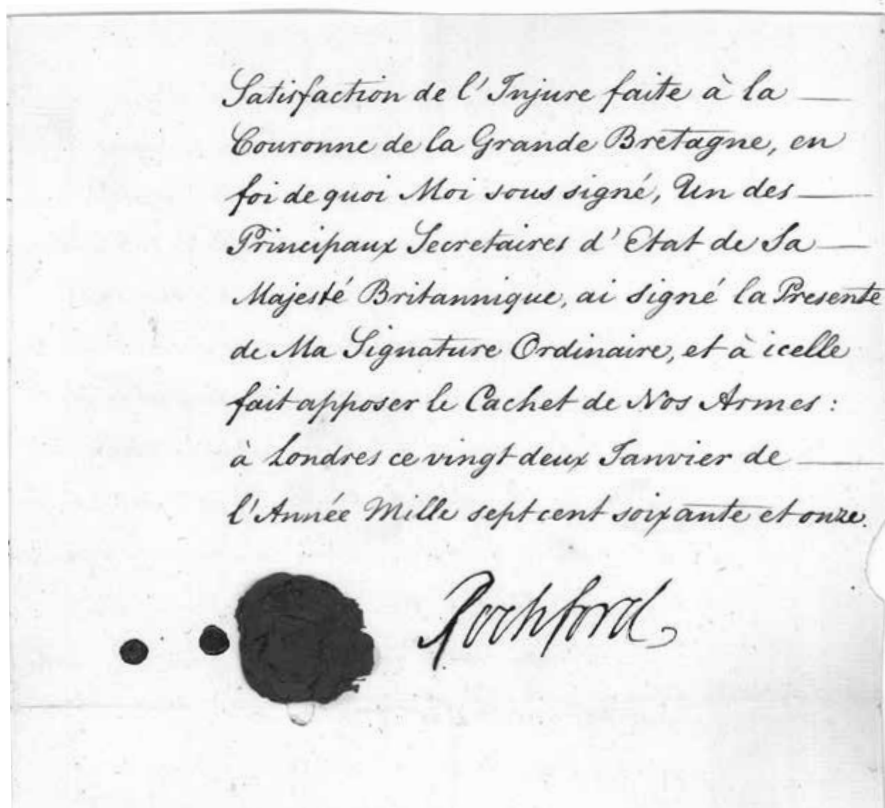 Satisfaction de l'Injure faite à la
Couronne de la Grande Bretagne, en
foi de quoi Moi sous signé, Un des
Principaux Secretaires d'Etat de Sa
Majesté Britannique, ai signé la Presente
de Ma Signature Ordinaire, et à icelle
fait apposer le Cachet de Nos Armes:
à Londres ce vingt deux Janvier de
l'Année Mille sept cent soixante et onze.
Rochford